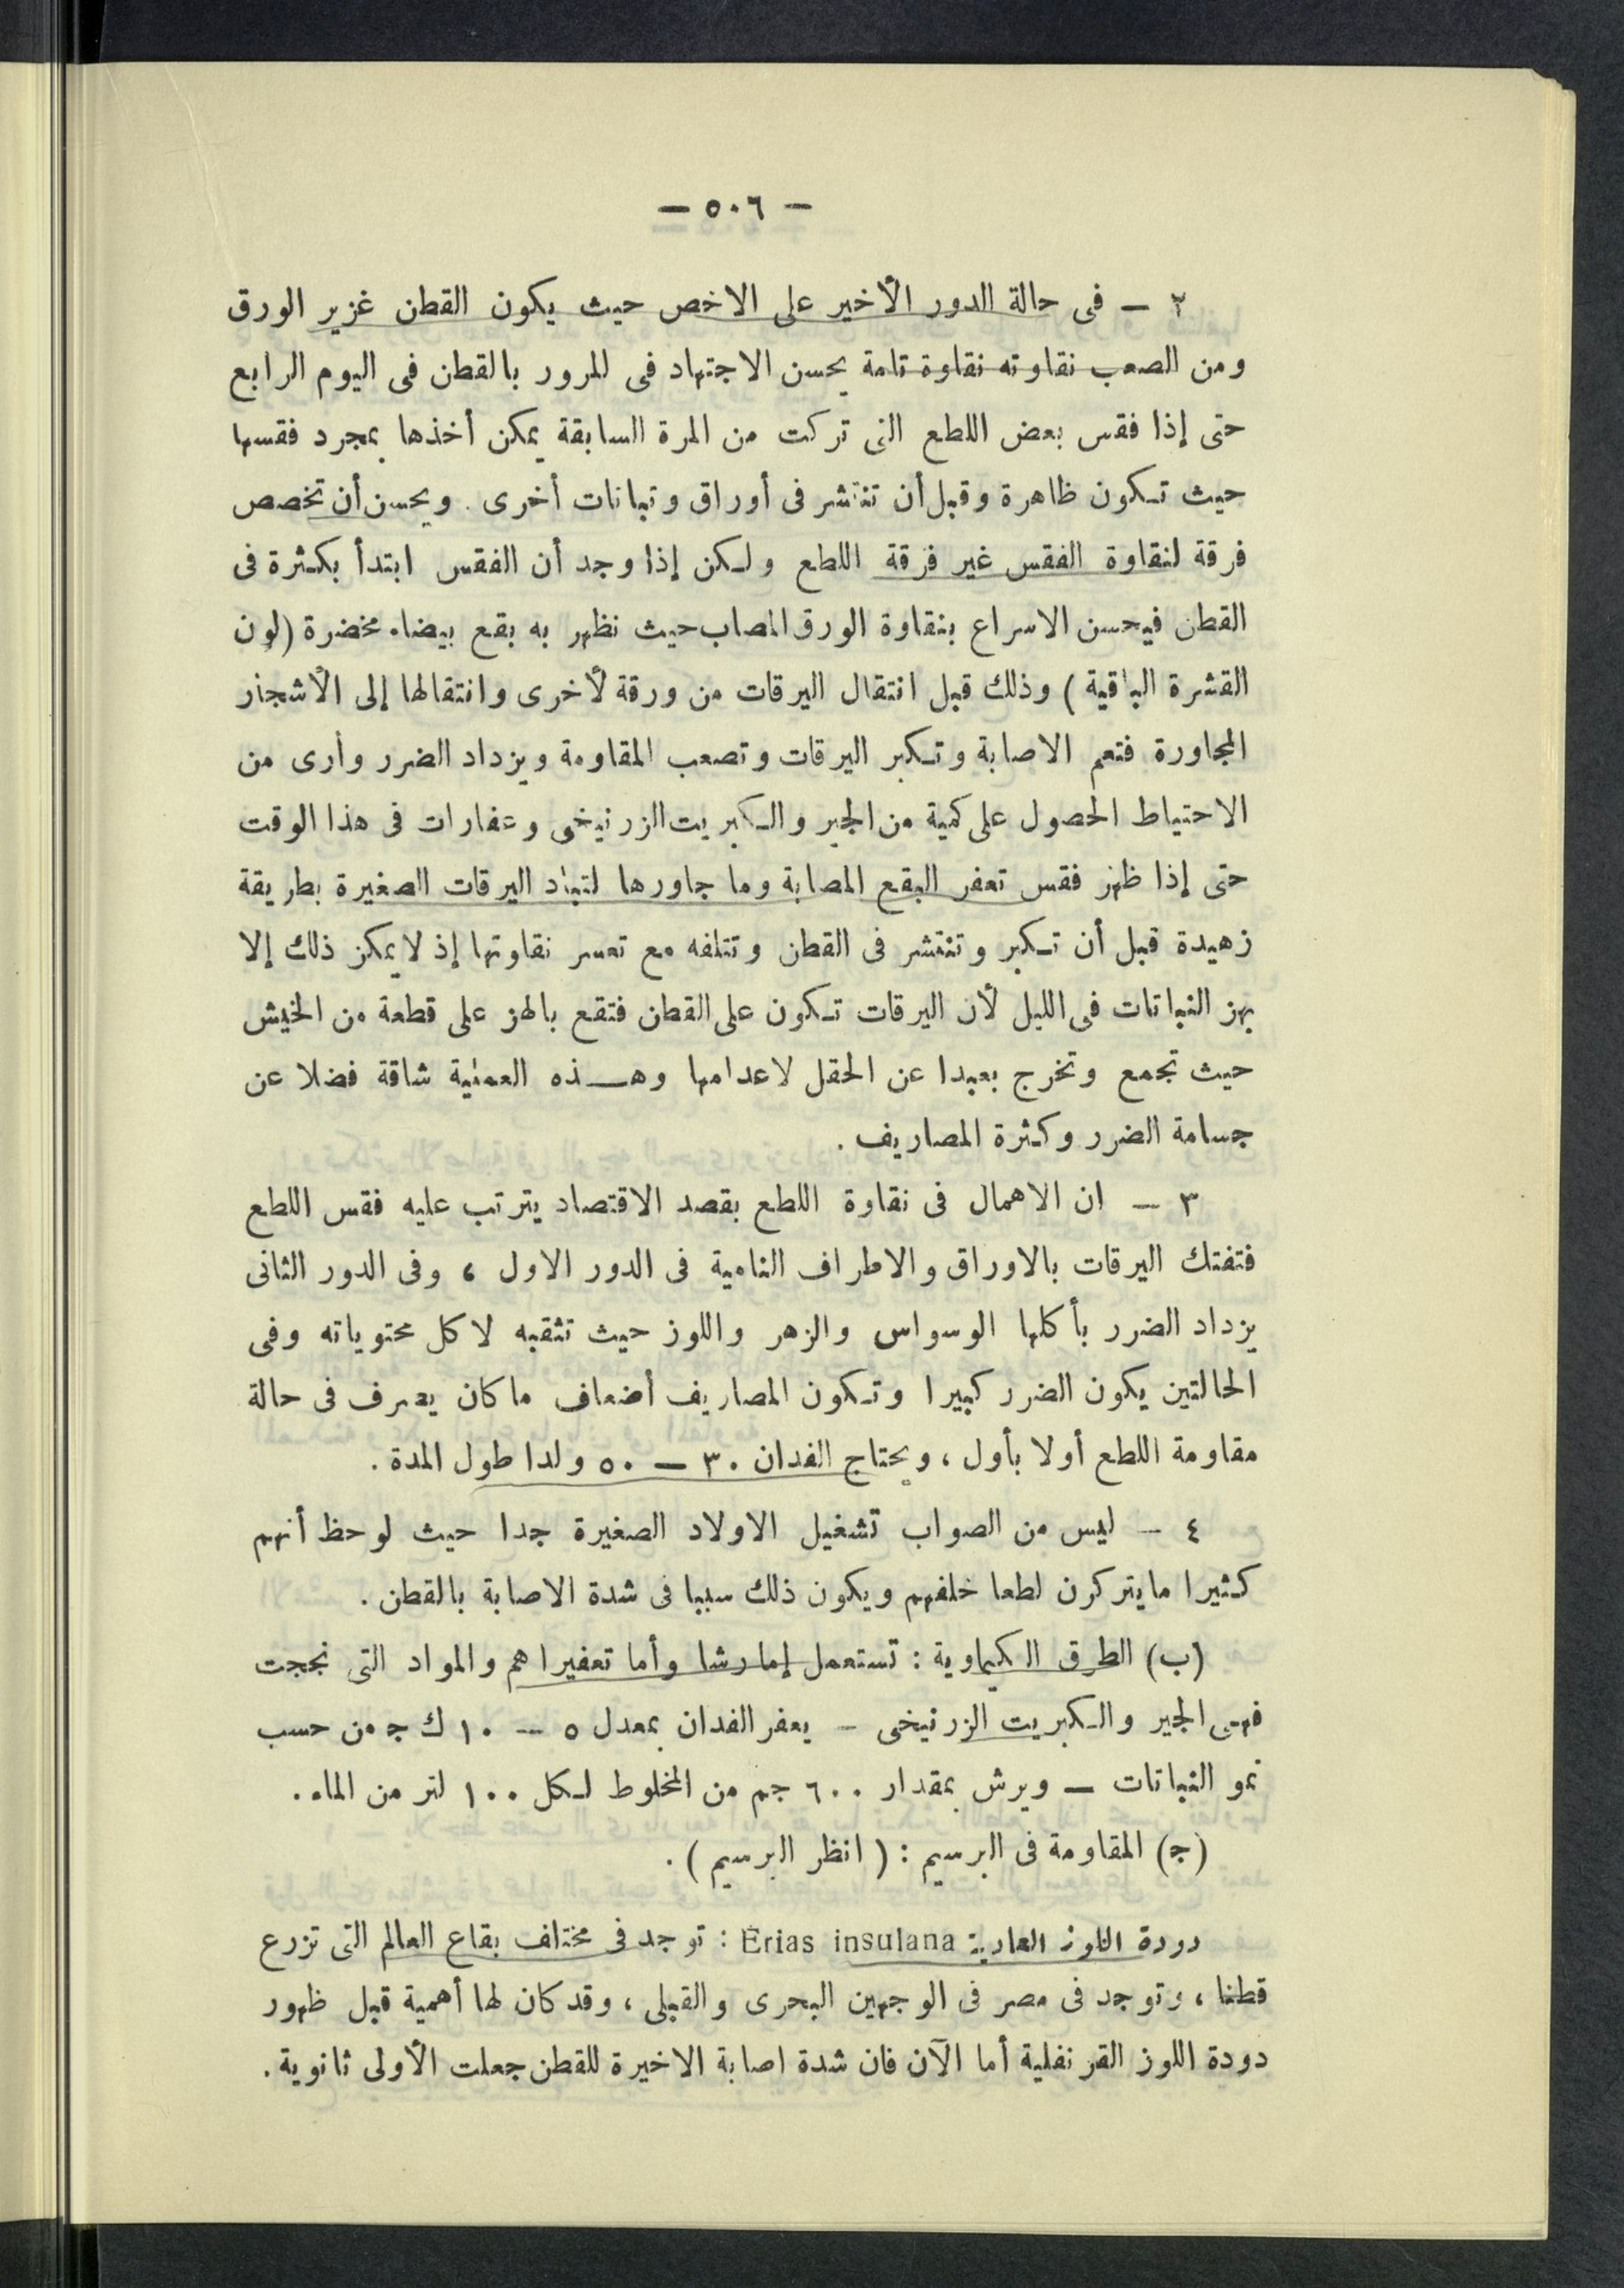 — ٥٠٦ —
٢ — فى حالة الدور الأخير على الاخص حيث يكون القطن غزير الورق
ومن الصعب نقاوته نقاوة تامة يحسن الاجتهاد فى المرور بالقطن فى اليوم الرابع
حتى إذا فقس بعض اللطع التى تركت من المرة السابقة يمكن أخذها بمجرد فقسها
حيث تكون ظاهرة وقبل أن تنتشر فى أوراق ونباتات أخرى . ويحسن أن تخصص
فرقة لنقاوة الفقس غير فرقة اللطع ولكن إذا وجد أن الفقس ابتدأ بكثرة فى
القطن فيحسن الاسراع بنقاوة الورق المصاب حيث تظهر به بقع بيضاء مخضرة (لون
القشرة الباقية) وذلك قبل انتقال اليرقات من ورقة لأخرى وانتقالها إلى الأشجار
المجاورة فتعم الاصابة وتكبر اليرقات وتصعب المقاومة ويزداد الضرر وأرى من
الاحتياط الحصول على كمية من الجير والكبريت الزرنيخى وعفارات فى هذا الوقت
حتى إذا ظهر فقس تعفر البقع المصابة وما جاورها لتباد اليرقات الصغيرة بطريقة
زهيدة قبل أن تكبر وتنتشر فى القطن وتتلفه مع تعسر نقاوتها إذ لا يمكن ذلك إلا
بهز النباتات فى الليل لأن اليرقات تكون على القطن فتقع بالهز على قطعة من الخيش
حيث تجمع وتخرج بعيدا عن الحقل لاعدامها وهذه العملية شاقة فضلا عن
جسامة الضرر وكثرة المصاريف .
٣ — ان الاهمال فى نقاوة اللطع بقصد الاقتصاد يترتب عليه فقس اللطع
فتفتك اليرقات بالاوراق والاطراف النامية فى الدور الاول ، وفى الدور الثانى
يزداد الضرر بأكلها الوسواس والزهر واللوز حيث تثقبه لاكل محتوياته وفى
الحالتين يكون الضرر كبيرا وتكون المصاريف أضعاف ما كان يصرف فى حالة
مقاومة اللطع أولا بأول ، ويحتاج الفدان ٣٠ — ٥٠ ولدا طول المدة .
٤ — ليس من الصواب تشغيل الاولاد الصغيرة جدا حيث لوحظ أنهم
كثيرا ما يتركون لطعا خلفهم ويكون ذلك سببا فى شدة الاصابة بالقطن .
(ب) الطرق الكيماوية : تستعمل إما رشا وأما تعفيرا هم والمواد التى نجحت
فهى الجير والكبريت الزرنيخى — يعفر الفدان بمعدل ٥ — ١٠ ك ج من حسب
نمو النباتات — ويرش بمقدار ٦٠٠ جم من المخلوط لكل ١٠٠ لتر من الماء .
(ج) المقاومة فى البرسيم : ( انظر البرسيم ) .
دودة اللوز العادية Erias insulana : توجد فى مختلف بقاع العالم التى تزرع
قطنا ، وتوجد فى مصر فى الوجهين البحرى والقبلى ، وقد كان لها أهمية قبل ظهور
دودة اللوز القرنفلية أما الآن فان شدة اصابة الاخيرة للقطن جعلت الأولى ثانوية .